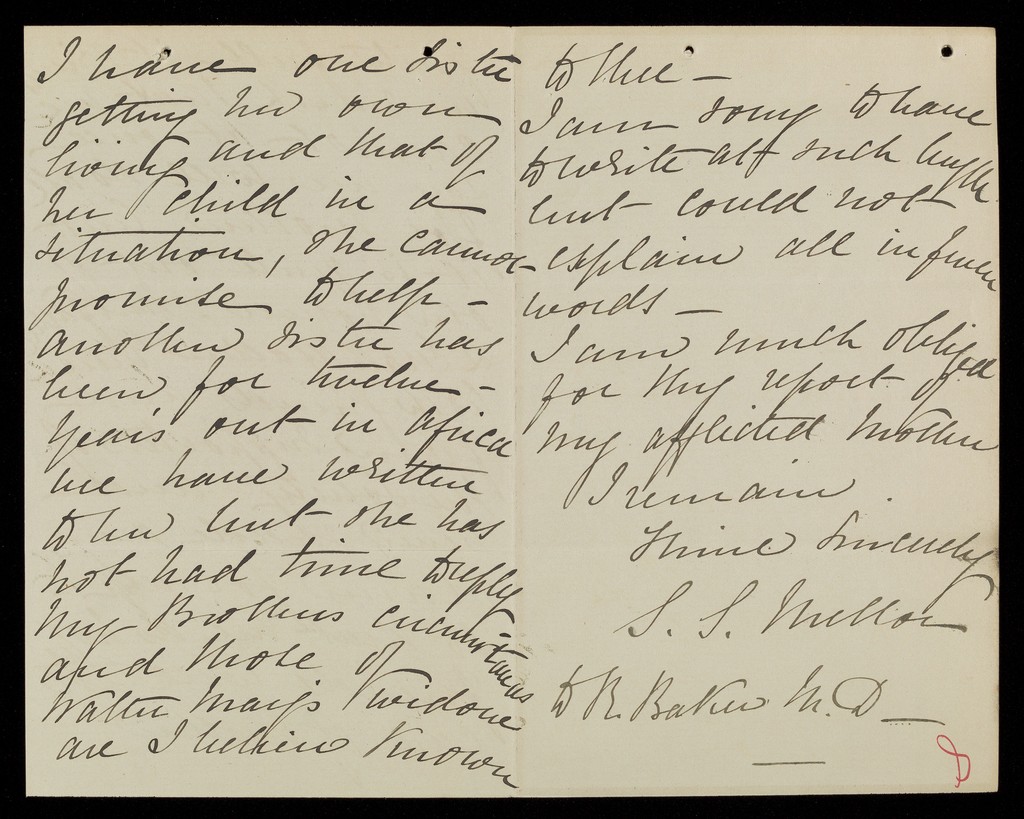 I have one sister
getting her own
living and that of
her child in a
situation, she cannot
promise to help -
another sister has
been for twelve -
years out in Africa
we have written
to her but she has
not had time to reply
My Brothers circumstances
and those of
Walter Mays widow
are I believe known
to thee -
I am sorry to have
to write at such length
but could not
explain all in fewer
words -
I am much obliged
for thy report of
my afflicted Mother
I remain .
Thine Sincerely
S. S. Mellor
to R. Baker M. D